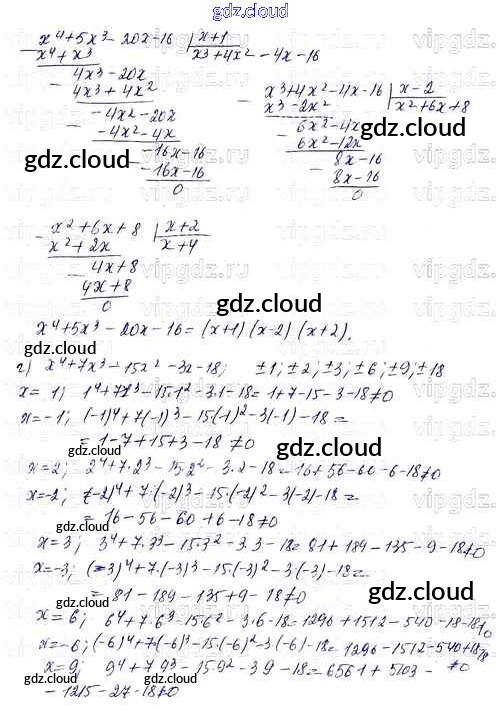 gdz.cloud
x⁴+5x³−20x−16 | x+1
x⁴+x³ x³+4x²−4x−16
4x³−20x
4x³+4x²
−4x²−20x
−4x²−4x
−16x−16
−16x−16
0
x³+4x²−4x−16 | x−2
x³−2x² x²+6x+8
6x²−4x
6x²−12x
8x−16
8x−16
0
gdz.cloud
gdz.cloud
x²+6x+8 | x+2
x²+2x x+4
4x+8
4x+8
0
gdz.cloud
x⁴+5x³−20x−16=(x+1)(x−2)(x+2).
г) x⁴+7x³−15x²−3x−18; ±1; ±2; ±3; ±6; ±9; ±18
x=1; 1⁴+7·1³−15·1²−3·1−18=1+7−15−3−18≠0
x=−1; (−1)⁴+7(−1)³−15(−1)²−3(−1)−18=
=1−7+15+3−18≠0
gdz.cloud
gdz.cloud
x=2; 2⁴+7·2³−15·2²−3·2−18=16+56−60−6−18≠0
x=−2; (−2)⁴+7·(−2)³−15·(−2)²−3(−2)−18=
=16−56−60+6−18≠0
gdz.cloud
x=3; 3⁴+7·3³−15·3²−3·3−18=81+189−135−9−18≠0
x=−3; (−3)⁴+7·(−3)³−15(−3)²−3(−3)−18=
=81−189−135+9−18≠0
gdz.cloud
gdz.cloud
x=6; 6⁴+7·6³−15·6²−3·6−18=1296+1512−540−18−18≠0
x=−6; (−6)⁴+7(−6)³−15·(−6)²−3(−6)−18=1296−1512−540+18−18≠0
x=9; 9⁴+7·9³−15·9²−3·9−18=6561+5103−
−1215−27−18≠0
gdz.cloud
gdz.cloud